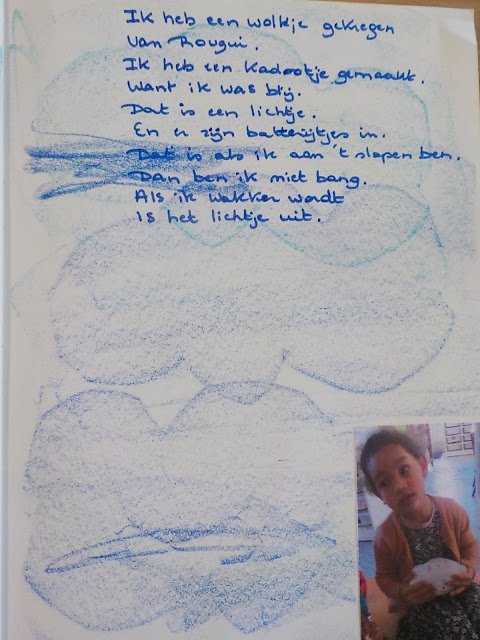 Ik heb een wolkje gekregen
van Rougui.
Ik heb een kadootje gemaakt.
Want ik was blij.
Dat is een lichtje.
En er zijn batterijtjes in.
Dat is als ik aan 't slapen ben.
Dan ben ik niet bang.
Als ik wakker wordt
is het lichtje uit.